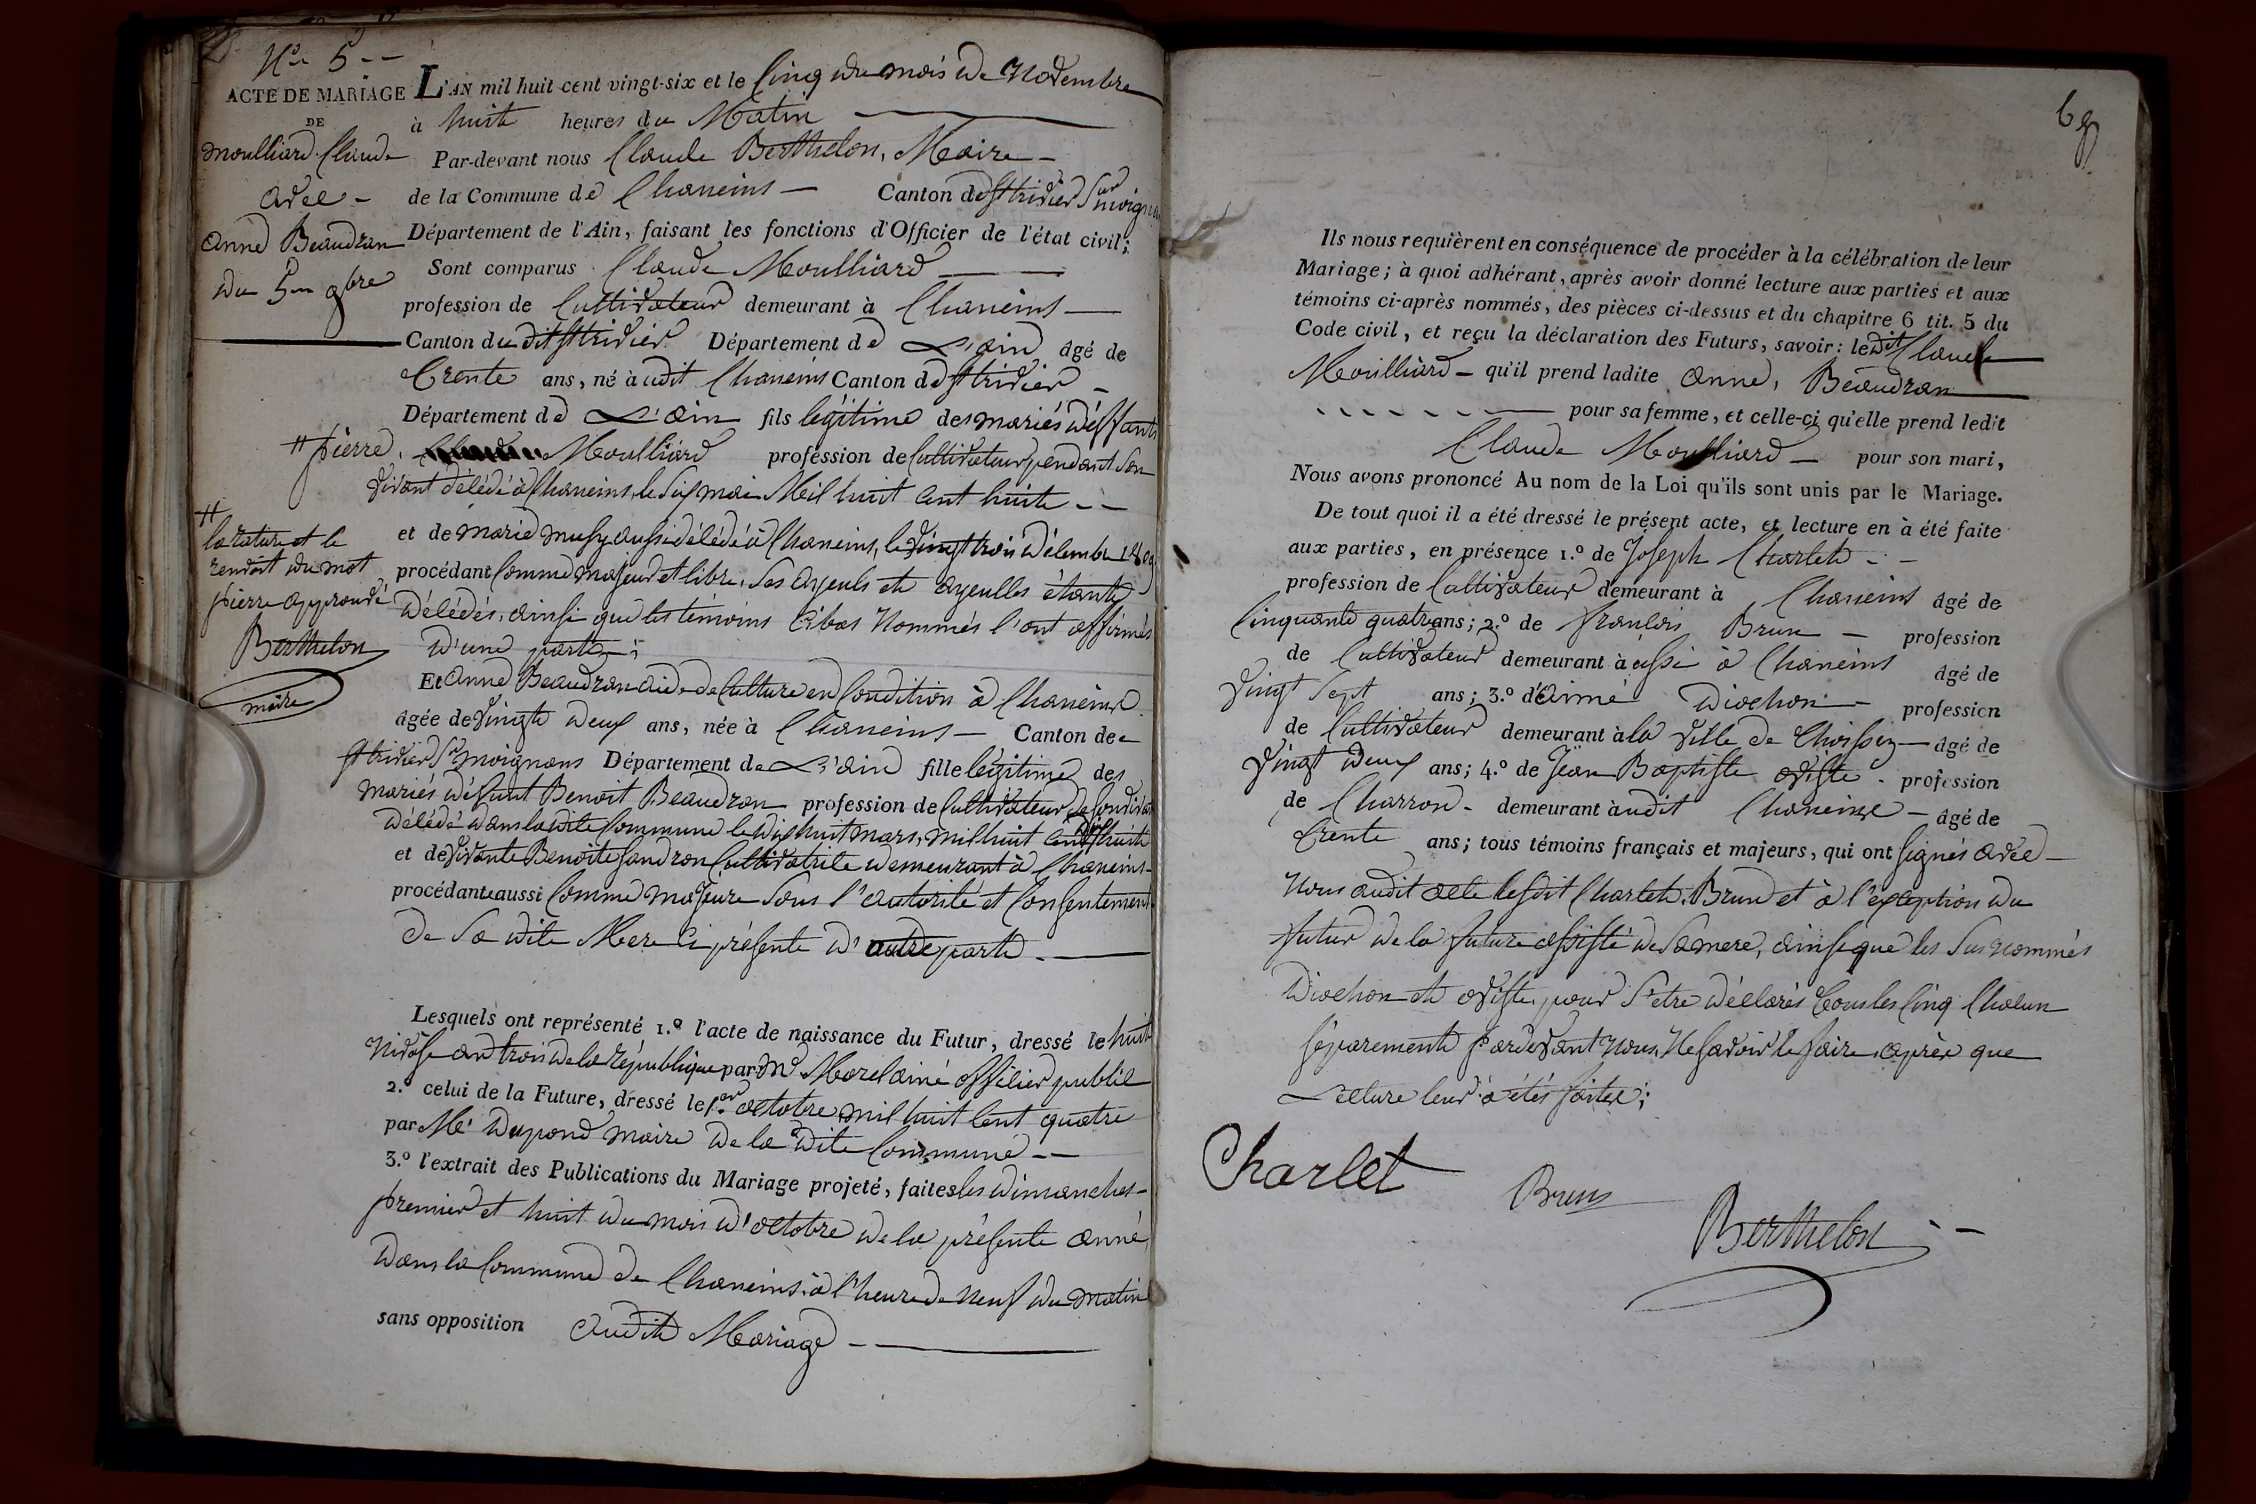 N.o 5
ACTE DE MARIAGE
DE
Moulliard Claude
avec
Anne Beaudran
du 5 9bre
L'AN mil huit cent vingt-six et le Cinq du mois de Novembre
à huit heures du Matin
Par-devant nous Claude Berthelon, Maire
de la Commune de Chaneins Canton de St trivier Sur moignans
Département de l'Ain, faisant les fonctions d'Officier de l'état civil;
Sont comparus Claude Moulliard
profession de Cultivateur demeurant à Chaneins
Canton du dit St trivier Département de L'ain âgé de
trente ans, né à udit Chaneins Canton de St trivier
Département de L'ain fils légitime des mariés deffunts
# pierre Moulliard profession de Cultivateur pendant Son
vivant décédé à Chaneins, le Six mai Mil huit cent huit
et de marie musy aussi décédé à Chaneins, le vingt trois décembre 1809
procédant Comme majeur et libre. Ses ayeuls et ayeulles étante
décédés, ainsi que les témoins Cibas Nommés l'ont affirmés
d'une parte;
#
la rature et le
renvoit du mot
pierre approuvé
Berthelon
maire
Et Anne Beaudran aide de Culture en Condition à Chaneins
âgée de vingte deux ans, née à Chaneins Canton de
St trivier Sr moignans Département de L'ain fille légitime des
mariés défunt Benoit Beaudran profession de Cultivateur
décédé dans la dite Commune le dix huit mars, mil huit cent dix huit
et de vivante Benoite Cultivatrice demeurant à Chaneins
procédante aussi Comme majeure Sous l'autorité et Consentement
de Sa dite Mere Ci présente d'autre parte.
Lesquels ont représenté 1.º l'acte de naissance du Futur, dressé le huit
Nivôse an trois de la république par Mr Morel ainé officier public
2.º celui de la Future, dressé le 1.er octobre mil huit Cent quatre
par Mr dupond maire de la dite Commune
3.º l'extrait des Publications du Mariage projeté, faites les dimanches
premier et huit du mois d'octobre de la présente année
dans la Commune de Chaneins à l'heure de neuf du matin
sans opposition audit Mariage
69
Ils nous requièrent en conséquence de procéder à la célébration de leur
Mariage; à quoi adhérant, après avoir donné lecture aux parties et aux
témoins ci-après nommés, des pièces ci-dessus et du chapitre 6 tit. 5 du
Code civil, et reçu la déclaration des Futurs, savoir: le dit Claude
Moulliard qu'il prend ladite Anne, Beaudran
pour sa femme, et celle-ci qu'elle prend ledit
Claude Moulliard pour son mari,
Nous avons prononcé Au nom de la Loi qu'ils sont unis par le Mariage.
De tout quoi il a été dressé le présent acte, et lecture en à été faite
aux parties, en présence 1.º de Joseph Charlet
profession de Cultivateur demeurant à Chaneins âgé de
Cinquante quatre ans; 2.º de françois Brun profession
de Cultivateur demeurant à ussi à Chaneins âgé de
vingt Sept ans; 3.º d'aimé diochon profession
de Cultivateur demeurant à la ville de Thoissey âgé de
vingt deux ans; 4.º de Jean Baptiste profession
de Charron demeurant à udit Chaneins âgé de
trente ans; tous témoins français et majeurs, qui ont Signés avec
Nous audit acte lesdit Charlet, Brun et à l'exception du
futur de la future assisté de Sa mere, ainsi que les Sus nommés
diochon et pour S'etre déclarés tous les Cinq Chacun
Séparement pardevant Nous, Ne Savoir le faire, après que
Lecture leur à étés faite;
Charlet
Brun
Berthelon